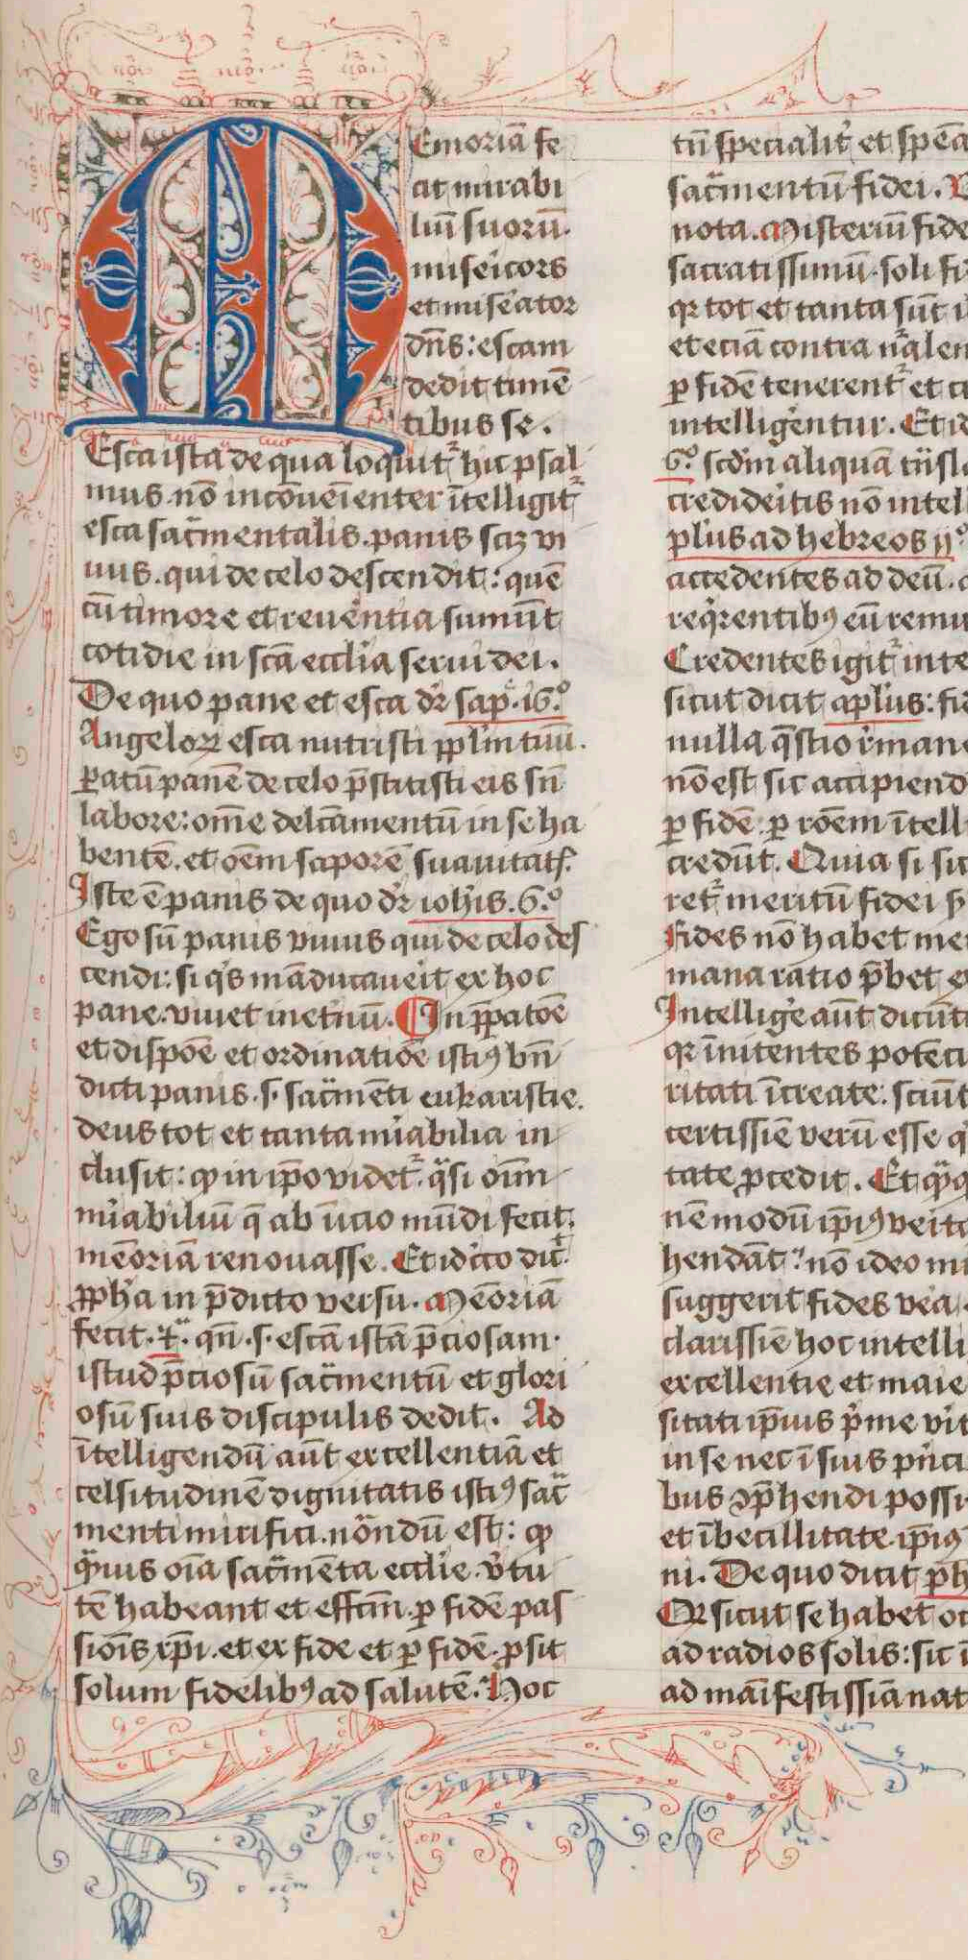 Memoriã fe
cit mirabi
liũ suorũ.
mise͛icors
et mise͛ator
dñs: escam
dedit timẽ
tibus se.
Esca ista de qua loquit᷑ hic psal
mus. nõ incõueĩenter ĩtelligit᷑
esca sac̃mentalis. panis sciꝫ vi
uus. qui de celo descendit: quẽ
cũ timore et reue͛ntia sumũt
cotidie in sc̃a ecc̃lia serui dei.
De quo pane et esca dr̃ sap̃. 16.°
Angeloꝝ esca nutristi pp̃l'm tuũ.
Paratũ panẽ de celo p̃stitisti eis sñ
labore: om̃e delc̃amentũ in se ha
bentẽ. et oẽm saporẽ suauitatꝭ.
Iste ẽ panis de quo dr̃ ioh̃is. 6.°
Ego sũ panis viuus qui de celo des
cendi: si q̇s mãducaue͛it ex hoc
pane. viuet inet͛nũ. In p̃patõe
et dispõe et ordinatiõe istiꝰ bñ
dicti panis. s. sac̃mẽti eukaristie.
deus tot et tanta mi͛abilia in
clusit: ꝙ in ip̃o videt᷑ q̃si oĩm
mi͛abiliũ q̃ ab ĩicio mũdi fecit.
mẽoriã renouasse. Et idc̃o dic̃
ꝓph̃a in p̃dicto versu. Mẽoriã
fecit. ⁊c̃. qñ. s. escã istã p̃ciosam.
istud p̃ciosũ sac̃mentũ et glori
osũ suis discipulis dedit. Ad
ĩtelligendũ aũt excellentiã et
celsitudinẽ dignitatis istiꝰ sac̃
menti mirifici. nõandũ est: ꝙ
q̃uis oĩa sac̃mẽta ecc̃lie. v͛tu
tẽ habeant et effc̃m. ꝑ fidẽ pas
siõis xp̃i. et ex fide et ꝑ fidẽ. ꝓsit
solum fidelibꝰ ad salutẽ. Hoc
tñ specialit͛ et spẽa
sac̃mentũ fidei.
nota. Misteriũ fide
sacratissimũ. soli fi
qꝛ tot et tanta sũt
et eciã contra nãlen
ꝑ fidẽ tenerent᷑ et
intellige͛ntur. Et id
6.° sc̃dm aliquã
credide͛itis nõ intel
ap̃lus ad hebreos
accedentes ad deũ.
req̇rentibꝰ eũ remu
Credentes igit᷑ inte
sicut dicit ap̃lus: fi
nulla q̃stio r͛mane
nõ est sic accipiend
ꝑ fidẽ. ꝑ rõem ĩtell
credũt. Quia si sic
ret᷑ meritũ fidei
Fides nõ habet mer
mana ratio p̃bet e
Intellige͛ aũt dicũt
qꝛ ĩnitentes potẽci
ritati ĩcreate: sciũt
certissiẽ verũ esse q
tate ꝓcedit. Et
nẽ modũ ip̃iꝰ ve͛it
hendãt: nõ ideo mi
suggerit fides ve͛a.
clarissiẽ hoc intelli
excellentie et maie
sitati ip̃ius p̃me v͛it
in se nec ĩ suis p̃nci
bus ꝯp̃hendi possi
et ĩbecillitate. ip̃iꝰ
ni. De quo dicit ph
Qꝛ sicut se habet oc
ad radios solis: sic
ad maĩfestissiã nat